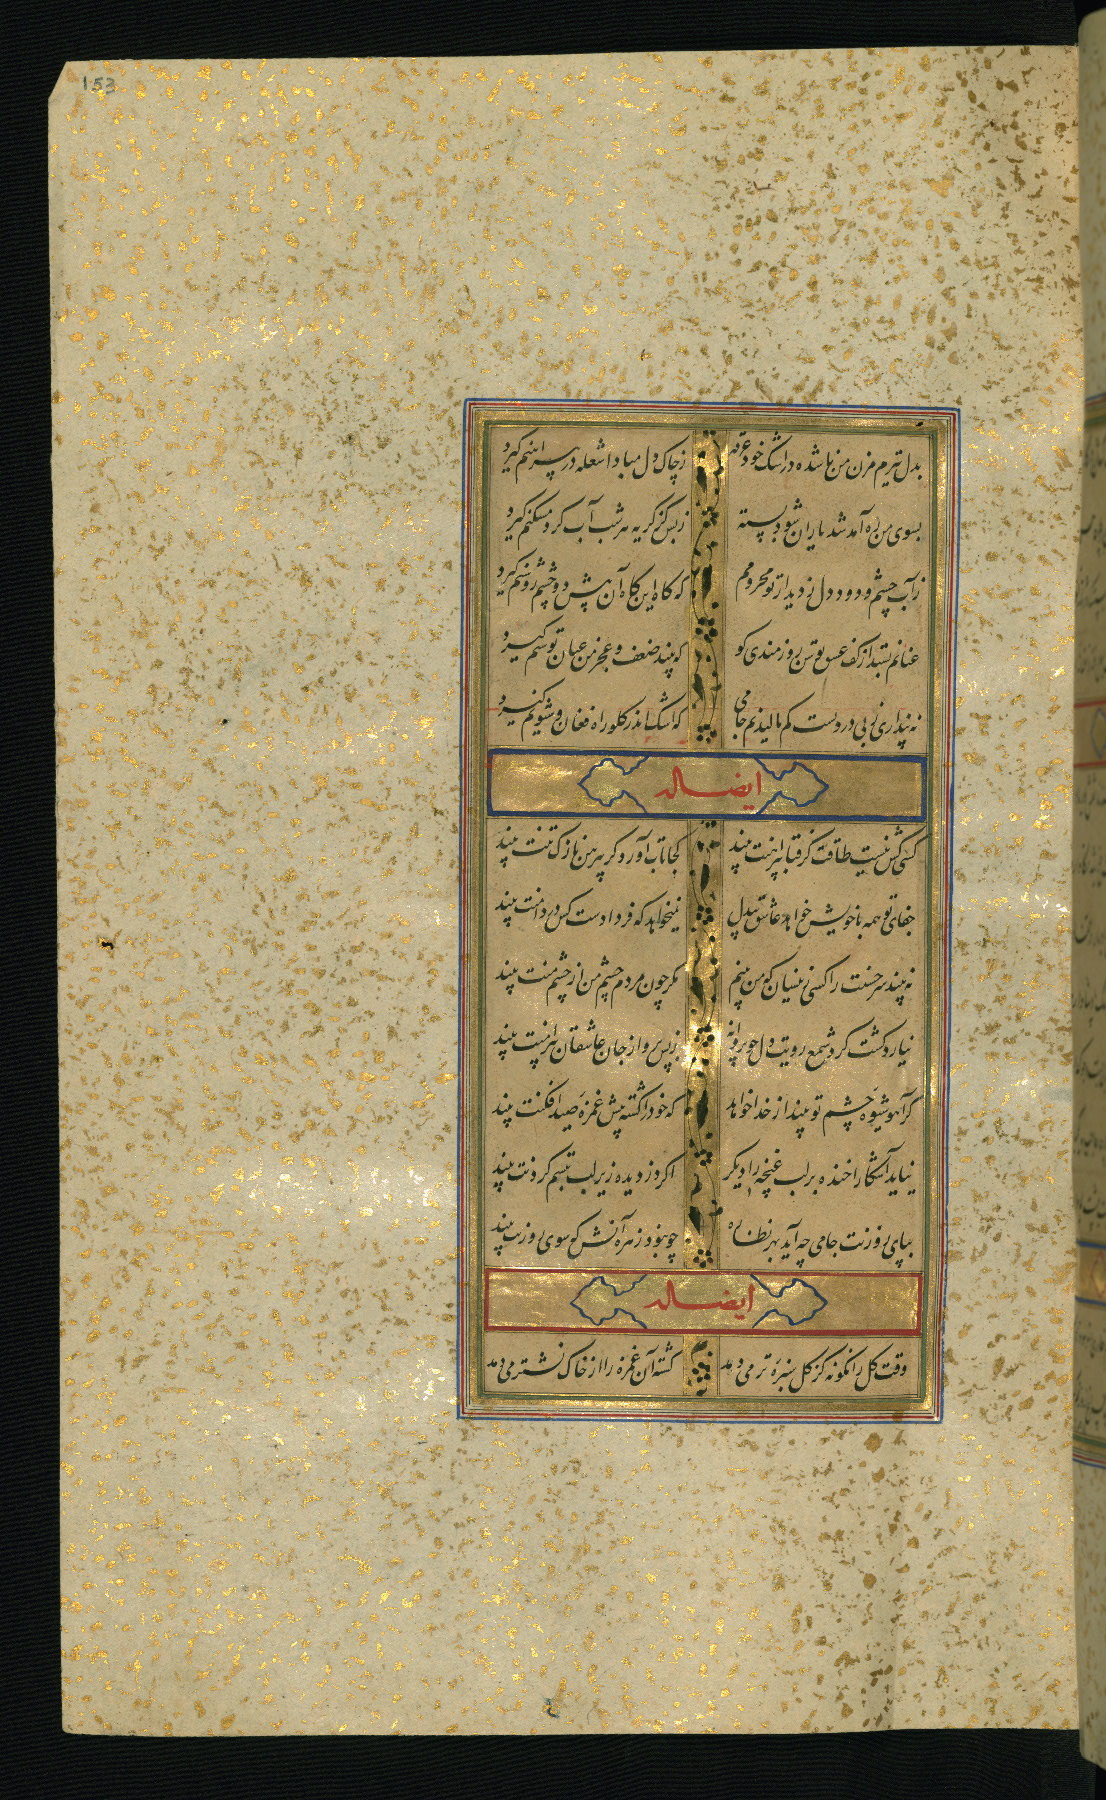 153
بدل تیرم مزن من نا شده در اشک خود غرقه ز چاک دل مبادا شعله در پیراهنم گیرد
بسوی من ره آمد شد یاران شود بسته ز بس کز گریه هر شب آب گرد مسکنم گیرد
ز آب چشم و دود دل ز دیدار تو محرومم که گاه این گاه آن پیش دو چشم روشنم گیرد
عنانم بستد از کف عشق تو سن روزمندی کو که بیند ضعف و عجز من عنان توسنم گیرد
نه پنداری ز بی دردیست کم نالیدنم جامی که اشک اندر گلو راه فغان و شیونم گیرد
ایضا له
کسی کش نیست طاقت کز قبا پیراهنت بیند کجا تاب آورد کز پیرهن نازک تنت بیند
جفای تو همه با خویش خواهد عاشق بیدل نمیخواهد که فردا دست کس در دامنت بیند
نه بیند سر حسنت را کسی زینسان که من بینم مگر چون مردم چشم من از چشم منت بیند
نیارد گشت گرد شمع رویت دل چو پروانه ز بس پرواز جان عاشقان پیرامنت بیند
گر آهو شیوه چشم تو بیند از خدا خواهد که خود را کشته پیش غمزه صید افکنت بیند
نیاید آشکارا خنده بر لب غنچه را دیگر اگر دزدیده زیر لب تبسم کردنت بیند
بپای روزنت جامی چه آید بهر نظاره چو نبود زهره آنش که سوی روزنت بیند
ایضا له
وقت گل زانگونه کز گل سبزه تر می دمد کشته آن غمزه را از خاک نشتر می دمد